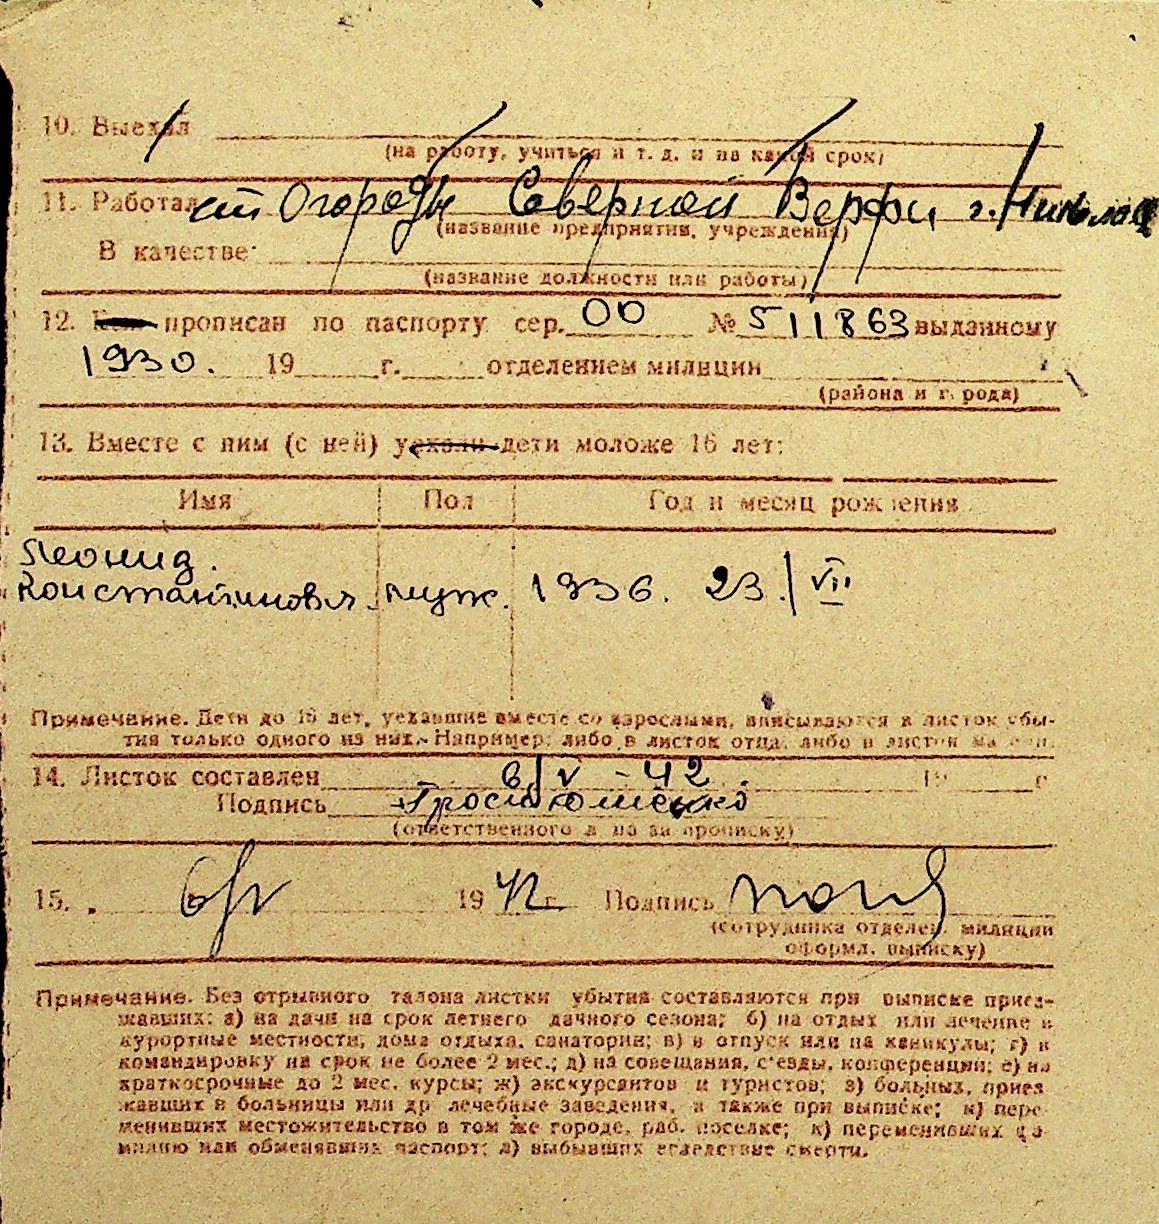 10. Выехал
(на работу, учиться и т. д. и на какой срок)
11. Работал ст Огороды Северной Верфи г.
(название предприятия, учреждения)
В качестве:
(название должности или работы)
12. прописан по паспорту сер. 00 № 511863 выданному
1930. 19 г. отделением милиции
(района и города)
13. Вместе с ним (с ней) уехали дети моложе 16 лет:
Имя Пол Год и месяц рождения
Леонид.
Константинович муж. 1936. 23/VII
Примечание. Дети до 16 лет, уехавшие вместе со взрослыми, вписываются в листок убы-
тия только одного из них. Например: либо в листок отца, либо в листок
14. Листок составлен 6/V - 42. 19 г
Подпись
(ответственного за прописку)
15. 6/V 1942 г. Подпись
(сотрудника отделен. милиции
оформл. выписку)
Примечание. Без отрывного талона листки убытия составляются при выписке приез-
жавших: а) на дачи на срок летнего дачного сезона; б) на отдых или лечение в
курортные местности, дома отдыха, санатории; в) в отпуск или на каникулы; г) в
командировку на срок не более 2 мес.; д) на совещания, с'езды, конференции; е) на
краткосрочные до 2 мес. курсы; ж) экскурсантов и туристов; з) больных, приез
жавших в больницы или др лечебные заведения, а также при выписке; и) пере-
менивших местожительство в том же городе, раб. поселке; к) переменивших фа-
милию или обменявших паспорт; л) выбывших вследствие смерти.